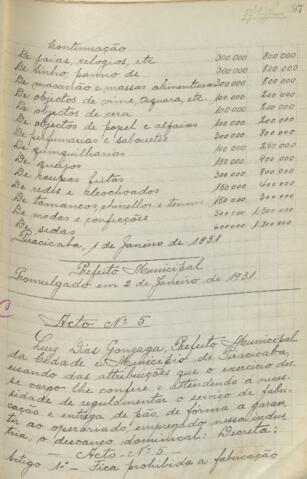 97
Continuação
De joias, relogios, etc. 300$000 800$000
De linho, panno de 300$000 800$000
De macarrão e massas alimenticias 300$000 800$000
De objectos de vime, taquara, etc. 100$000 200$000
De objectos de cera 100$000 200$000
De objectos de papel e alfaias 100$000 200$000
De perfumarias e sabonetes 300$000 800$000
De quinquilharias 100$000 250$000
De queijos 150$000 400$000
De roupas feitas 300$000 800$000
De redes e acolchoados 150$000 400$000
De tamancos, chinellos e tennis 150$000 300$000
De modas e confecções 500$000 1.500$000
De sedas 600$000 1.800$000
Piracicaba, 1 de Janeiro de 1931
Prefeito Municipal
Promulgado em 2 de Janeiro de 1931.
Acto Nº 5
Luiz Dias Gonzaga, Prefeito Municipal
da Cidade e Municipio de Piracicaba,
usando das attribuições que o exercicio des-
se cargo lhe confere e attendendo á neces-
sidade de regulamentar o serviço de fabri-
cação e entrega de pão, de forma a garan-
tir ao operariado, empregado nessa indus-
tria, o descanço dominical: Decreta:
— Acto - Nº 5 —
Artigo 1º - Fica prohibida a fabricação